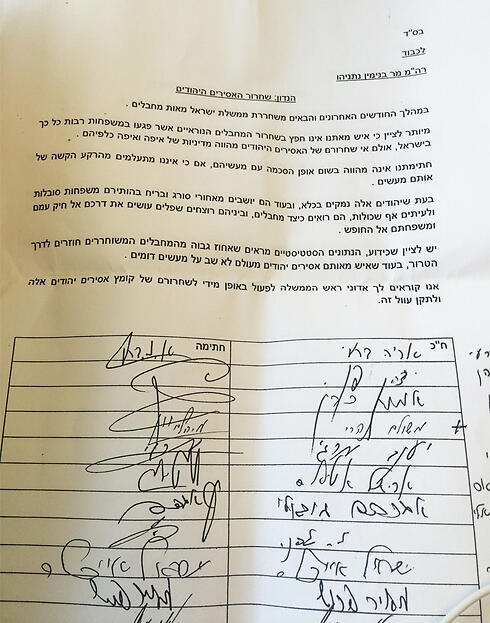 בס"ד
לכבוד
רה"מ מר בנימין נתניהו
הנדון: שחרור האסירים היהודים
במהלך החודשים האחרונים והבאים משחררת ממשלת ישראל מאות מחבלים .
מיותר לציין כי איש מאתנו אינו חפץ בשחרור המחבלים הנוראיים אשר פגעו במשפחות רבות כל כך
בישראל, אולם אי שחרורם של האסירים היהודים מהווה מדיניות של איפה ואיפה כלפיהם .
חתימתנו אינה מהווה בשום אופן הסכמה עם מעשיהם, אם כי איננו מתעלמים מהרקע הקשה של
אותם מעשים .
בעת שיהודים אלה נמקים בכלא, ובעוד הם יושבים מאחורי סורג ובריח בהותירם משפחות סובלות
ולעיתים אף שכולות, הם רואים כיצד מחבלים, וביניהם רוצחים שפלים עושים את דרכם אל חיק עמם
ומשפחתם אל החופש .
יש לציין שכידוע, הנתונים הסטטיסטיים מראים שאחוז גבוה מהמחבלים המשוחררים חוזרים לדרך
הטרור, בעוד שאיש מאותם אסירים יהודים מעולם לא שב על מעשים דומים .
אנו קוראים לך אדוני ראש הממשלה לפעול באופן מידי לשחרורם של קומץ אסירים יהודים אלה
ולתקן עוול זה.
ח"כ חתימה
אריה דרעי
משולם נהרי
יעקב מרגי
אברהם
ישראל אייכלר ישראל אייכלר
מאיר פרוש מאיר פרוש